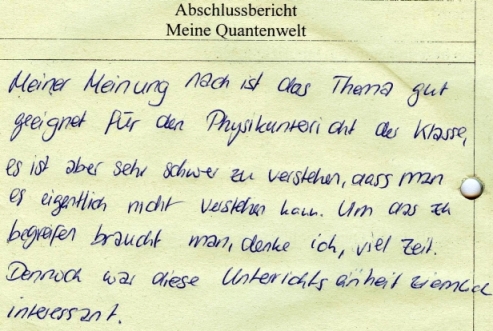 Abschlussbericht
Meine Quantenwelt
Meiner Meinung nach ist das Thema gut
geeignet für den Physikunterricht der Klasse,
es ist aber sehr schwer zu verstehen, dass man
es eigentlich nicht verstehen kann. Um das zu
begreifen braucht man, denke ich, viel Zeit.
Dennoch war diese Unterrichtseinheit ziemlich
interessant.